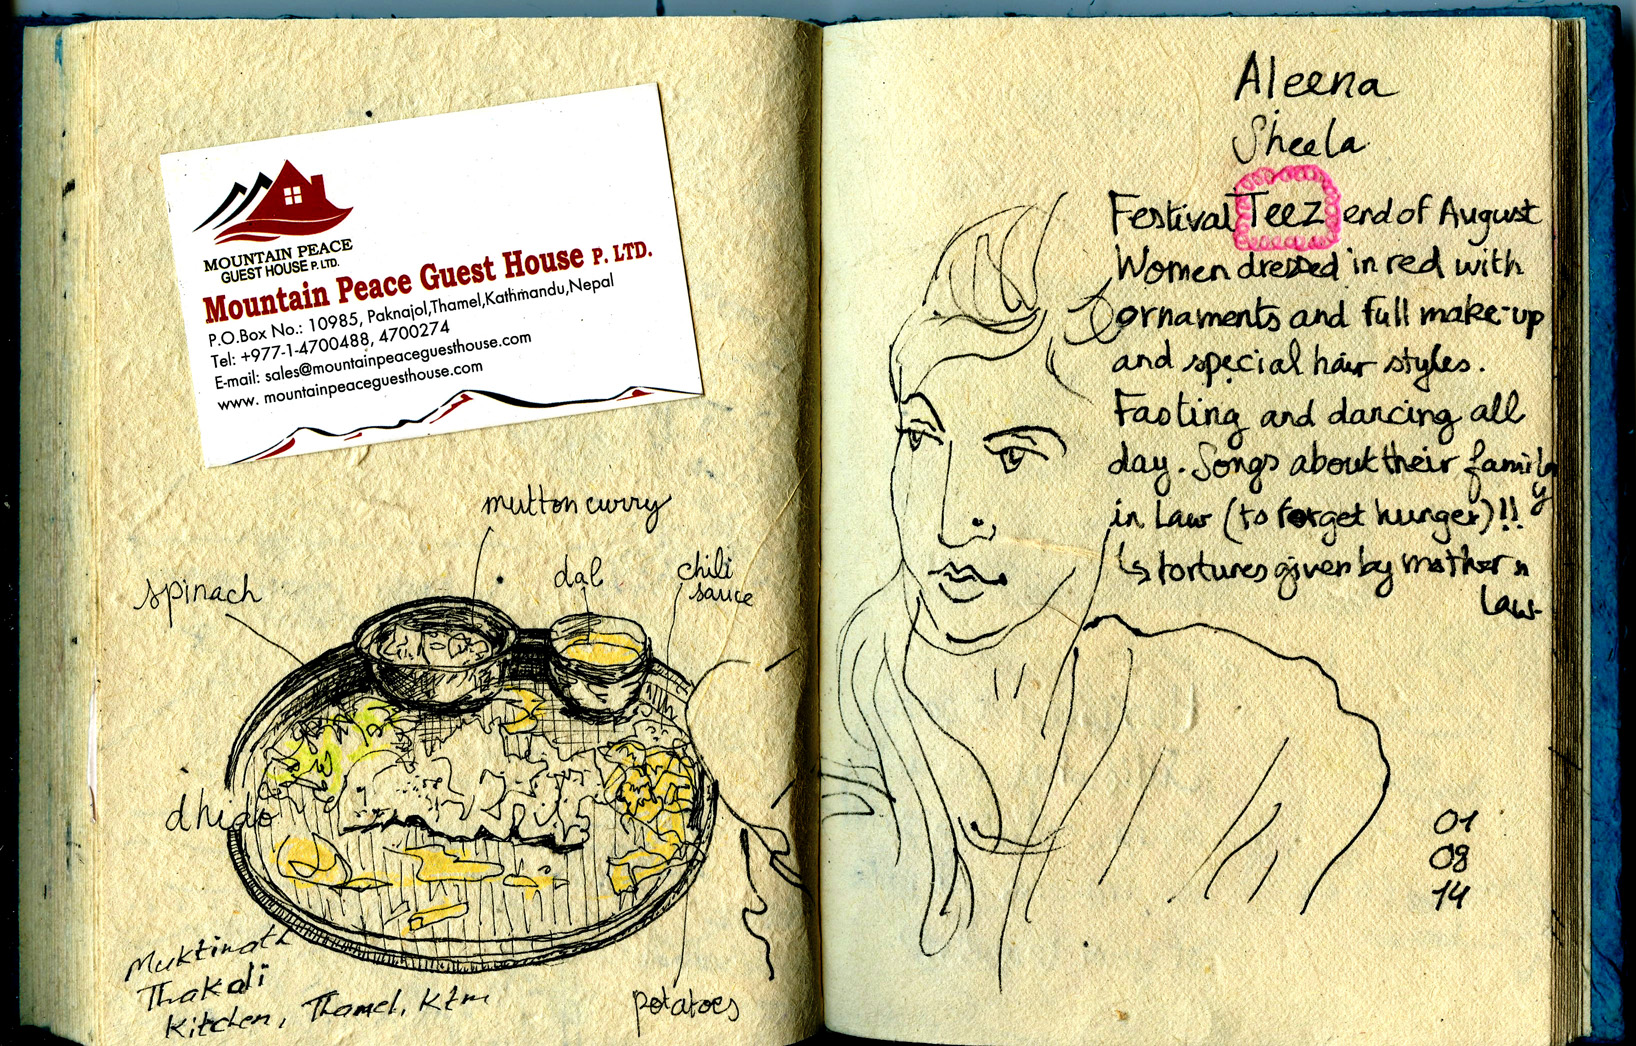 MOUNTAIN PEACE
GUEST HOUSE P. LTD.
Mountain Peace Guest House P. LTD.
P.O.Box No.: 10985, Paknajol,Thamel,Kathmandu,Nepal
Tel: +977-1-4700488, 4700274
E-mail: sales@mountainpeaceguesthouse.com
www. mountainpeaceguesthouse.com
mutton curry
dal
chili
sauce
spinach
dhido
potatoes
Muktinath
Thakali
Kitchen, Thamel, Ktm
Aleena
Sheela
Festival Teez end of August
Women dressed in red with
ornaments and full make-up
and special hair styles.
Fasting and dancing all
day. Songs about their family
y
in Law (to forget hunger)!!
↳ tortures given by mother n
Law
01
08
14